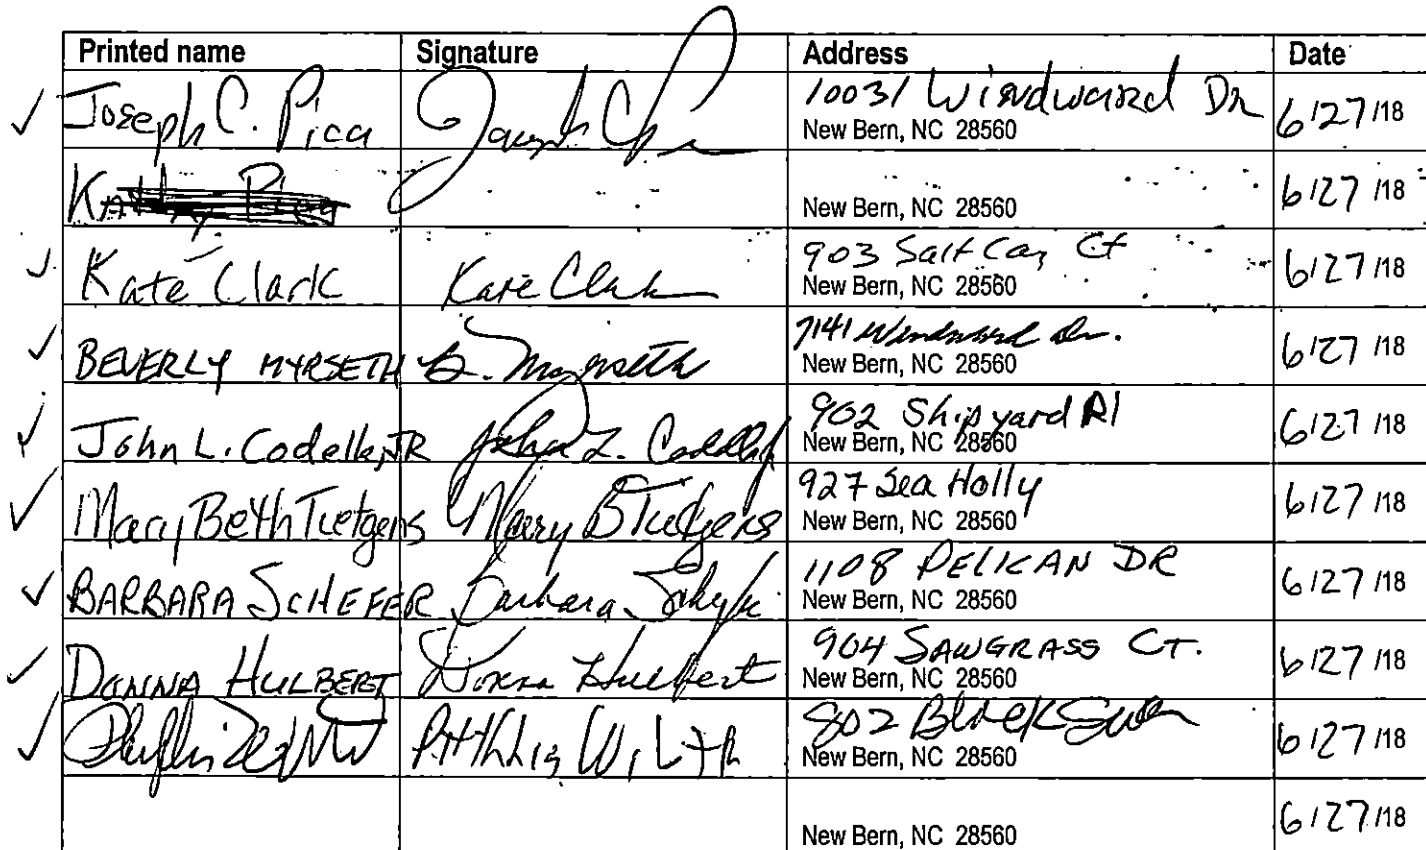 Printed name Signature Address Date
✓ Joseph C. Pica Joseph C P 10031 Windward Dr
New Bern, NC 28560 6/27/18
New Bern, NC 28560 6/27/18
✓ Kate Clark Kate Clark 903 Salt Cay Ct
New Bern, NC 28560 6/27/18
✓ BEVERLY MYRSETH B. Myrseth 7141 Windward Dr.
New Bern, NC 28560 6/27/18
✓ John L. Codella, JR John L. Codella 902 Shipyard
New Bern, NC 28560 6/27/18
✓ Mary Beth Tietgens Mary B Tietgens 927 Sea Holly
New Bern, NC 28560 6/27/18
✓ BARBARA SCHEFER Barbara Schefer 1108 PELICAN DR
New Bern, NC 28560 6/27/18
✓ DONNA HULBERT Donna Hulbert 904 SAWGRASS CT.
New Bern, NC 28560 6/27/18
✓ 802 Black Swan
New Bern, NC 28560 6/27/18
New Bern, NC 28560 6/27/18